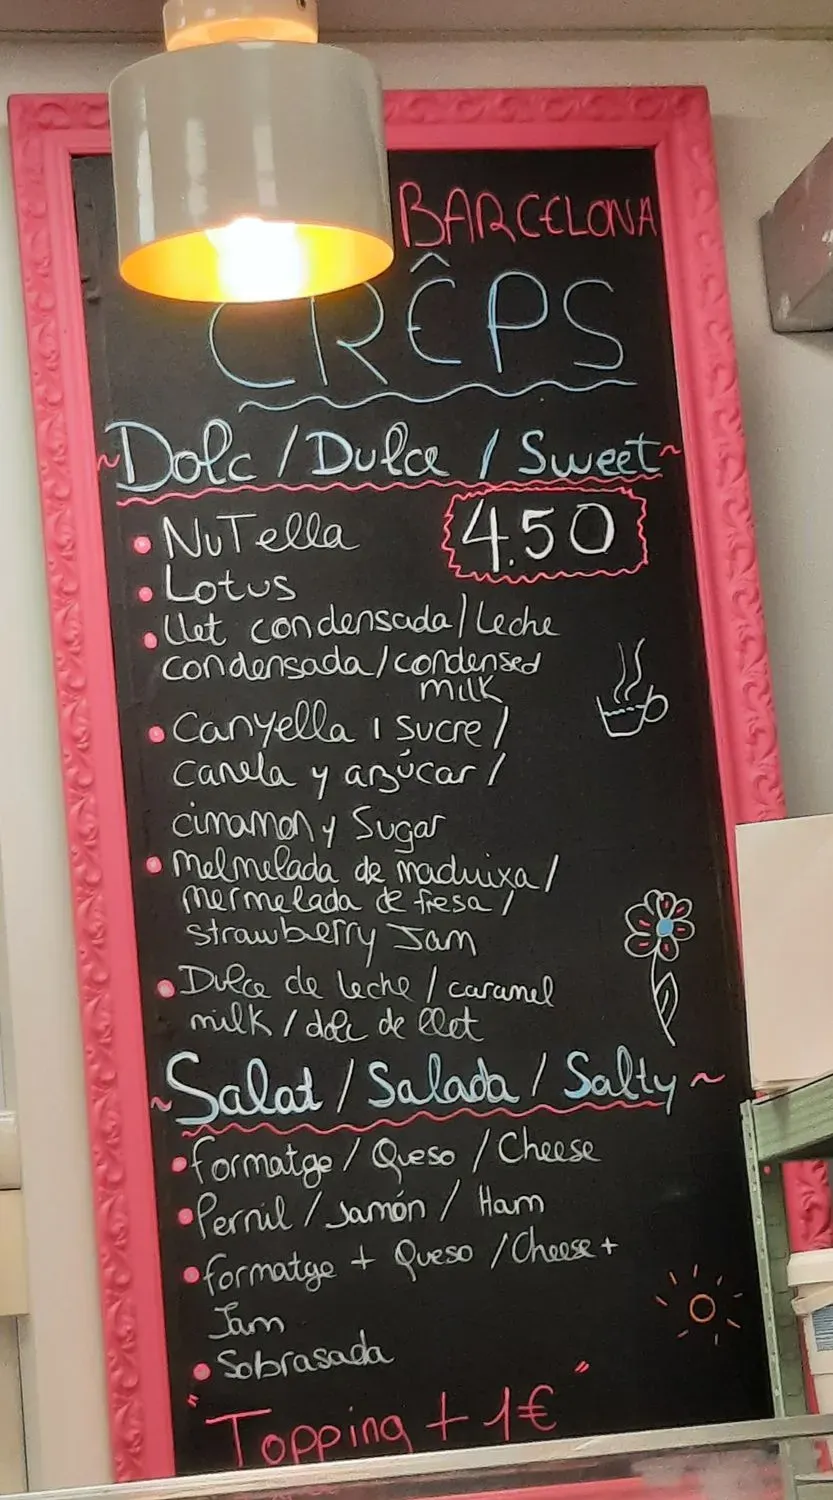 BARCELONA
CRÊPS
~Dolç / Dulce / Sweet~
• NuTella 4.50
• Lotus
• Llet condensada / Leche
condensada / condensed
milk
• Canyella i sucre /
canela y azúcar /
cinamon y Sugar
• Melmelada de maduixa /
mermelada de fresa /
strawberry Jam
• Dulce de leche / caramel
milk / dolç de llet
~Salat / Salada / Salty~
• formatge / Queso / Cheese
• Pernil / Jamón / Ham
• formatge + Queso / Cheese +
Jam
• Sobrasada
"Topping + 1€"